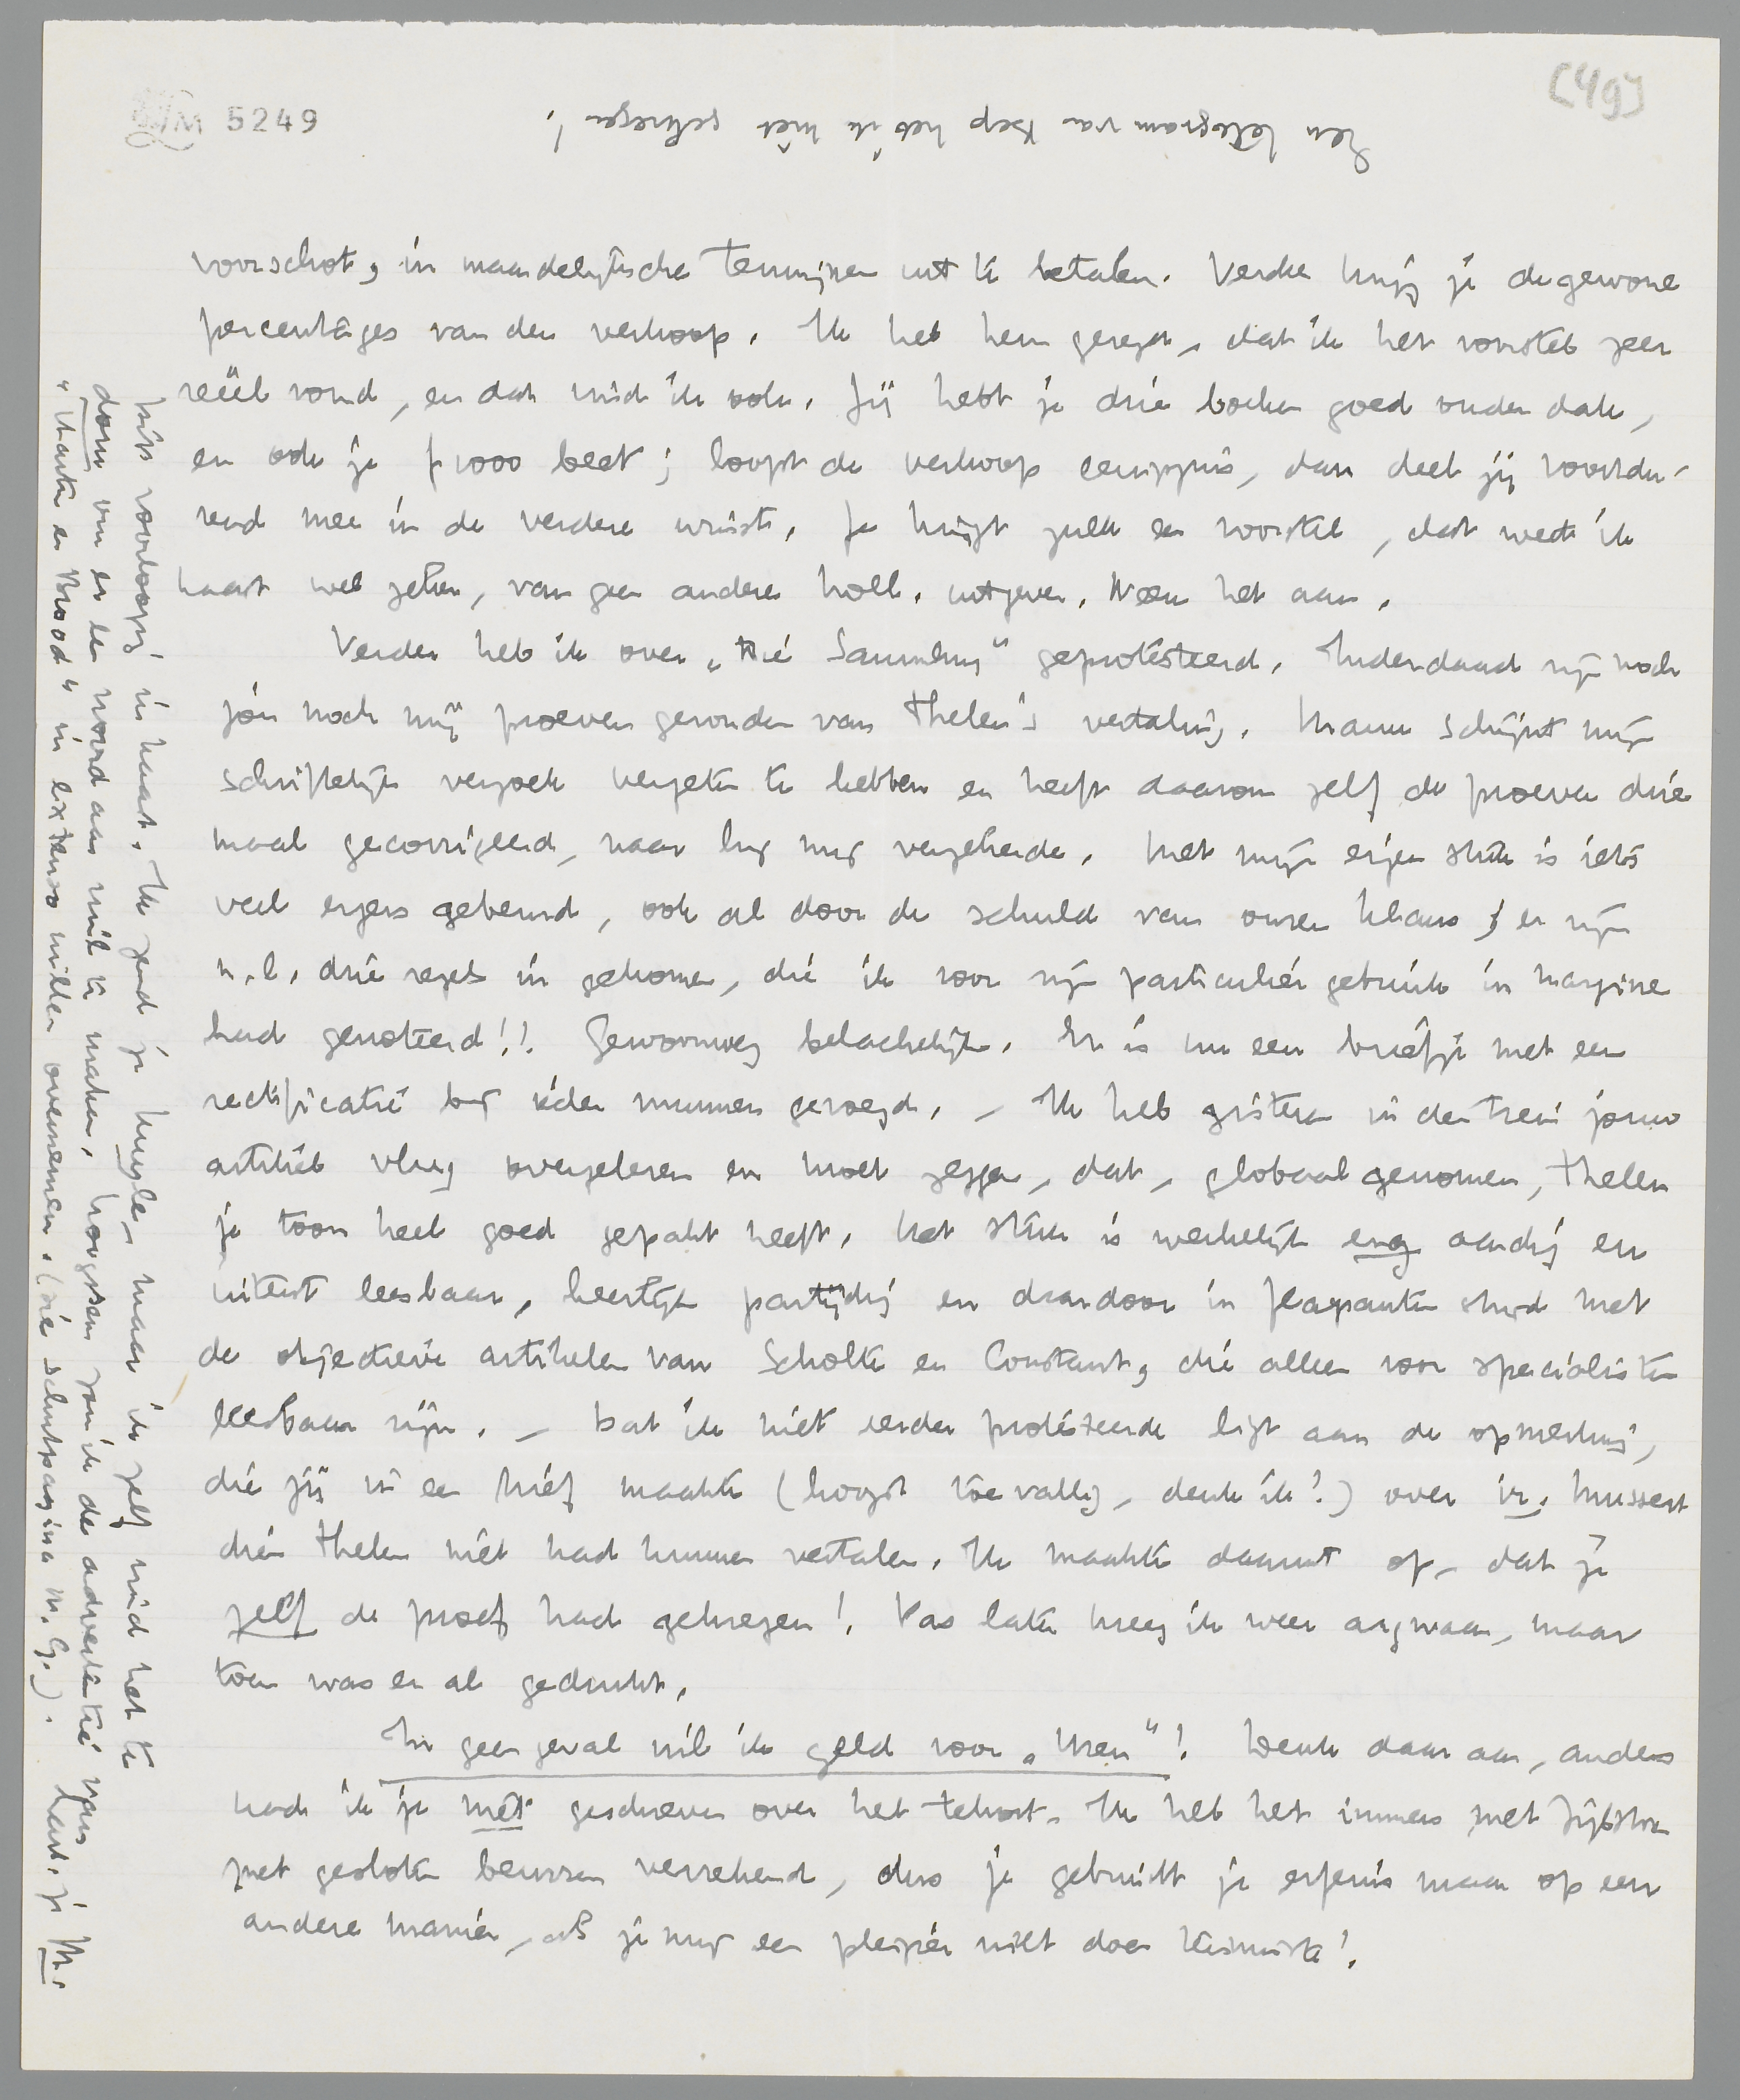 [49]
LM 5249
Een telegram van Bep heb ik niet gekregen!
voorschot, in maandelijksche termijnen uit te betalen. Verder krijg je de gewone
percentages van den verkoop. Ik heb hem gezegd, dat ik het voorstel zeer
reëel vond, en dat vind ik ook. Jij hebt je drie boeken goed onder dak,
en ook je ƒ 1000 beet; loopt de verkoop eenigszins, dan deel jij voortdu-
rend mee in de verdere winst. Je krijgt zulk een voorstel, dat wed ik
haast wel zeker, van geen andere holl. uitgever. Neem het aan.
Verder heb ik over „Die Sammlung" geprotesteerd. Inderdaad zijn noch
jou noch mij proeven gezonden van Thelen's vertaling. Mann schijnt mijn
schriftelijk verzoek vergeten te hebben en heeft daarom zelf de proeven drie
maal gecorrigeerd, naar hij mij verzekerde. Met mijn eigen stuk is iets
veel ergers gebeurd, ook al door de schuld van onzen Klaus; er zijn
n.l. drie regels in gekomen, die ik voor mijn particulier gebruik in margine
had genoteerd!! Gewoonweg belachelijk. Er is nu een briefje met een
rectificatie bij ieder nummer gevoegd. – Ik heb gisteren in den trein jouw
artikel vlug overgelezen en moet zeggen, dat, globaal genomen, Thelen
je toon heel goed gepakt heeft. Het stuk is werkelijk erg aardig en
uiterst leesbaar, heerlijk partijdig en daardoor in flagranten strijd met
de objectieve artikelen van Scholte en Constant, die alleen voor specialisten
leesbaar zijn. – Dat ik niet eerder protesteerde ligt aan de opmerking,
die jij in een brief maakte (hoogst toevallig, denk ik?) over ir. Mussert
dien Thelen niet had kunnen vertalen. Ik maakte daaruit op, dat je
zelf de proef had gekregen! Pas later kreeg ik weer argwaan, maar
toen was er al gedrukt.
In geen geval wil ik geld voor „Uren"! Denk daar aan, anders
had ik je niet geschreven over het tekort. Ik heb het immers met Zijlstra
met gesloten beurzen verrekend, dus je gebruikt je erfenis maar op een
andere manier, als je mij een plezier wilt doen tenminste!
hier voorloopig in haast. Ik zend je Huyzer, maar ik zelf vind het te
dom om er een woord aan vuil te maken, hoogstens zou ik de advertentie van
„Waarten en Brood" in extenso willen overnemen. (zie schutpagina M.G.). hart. je M.